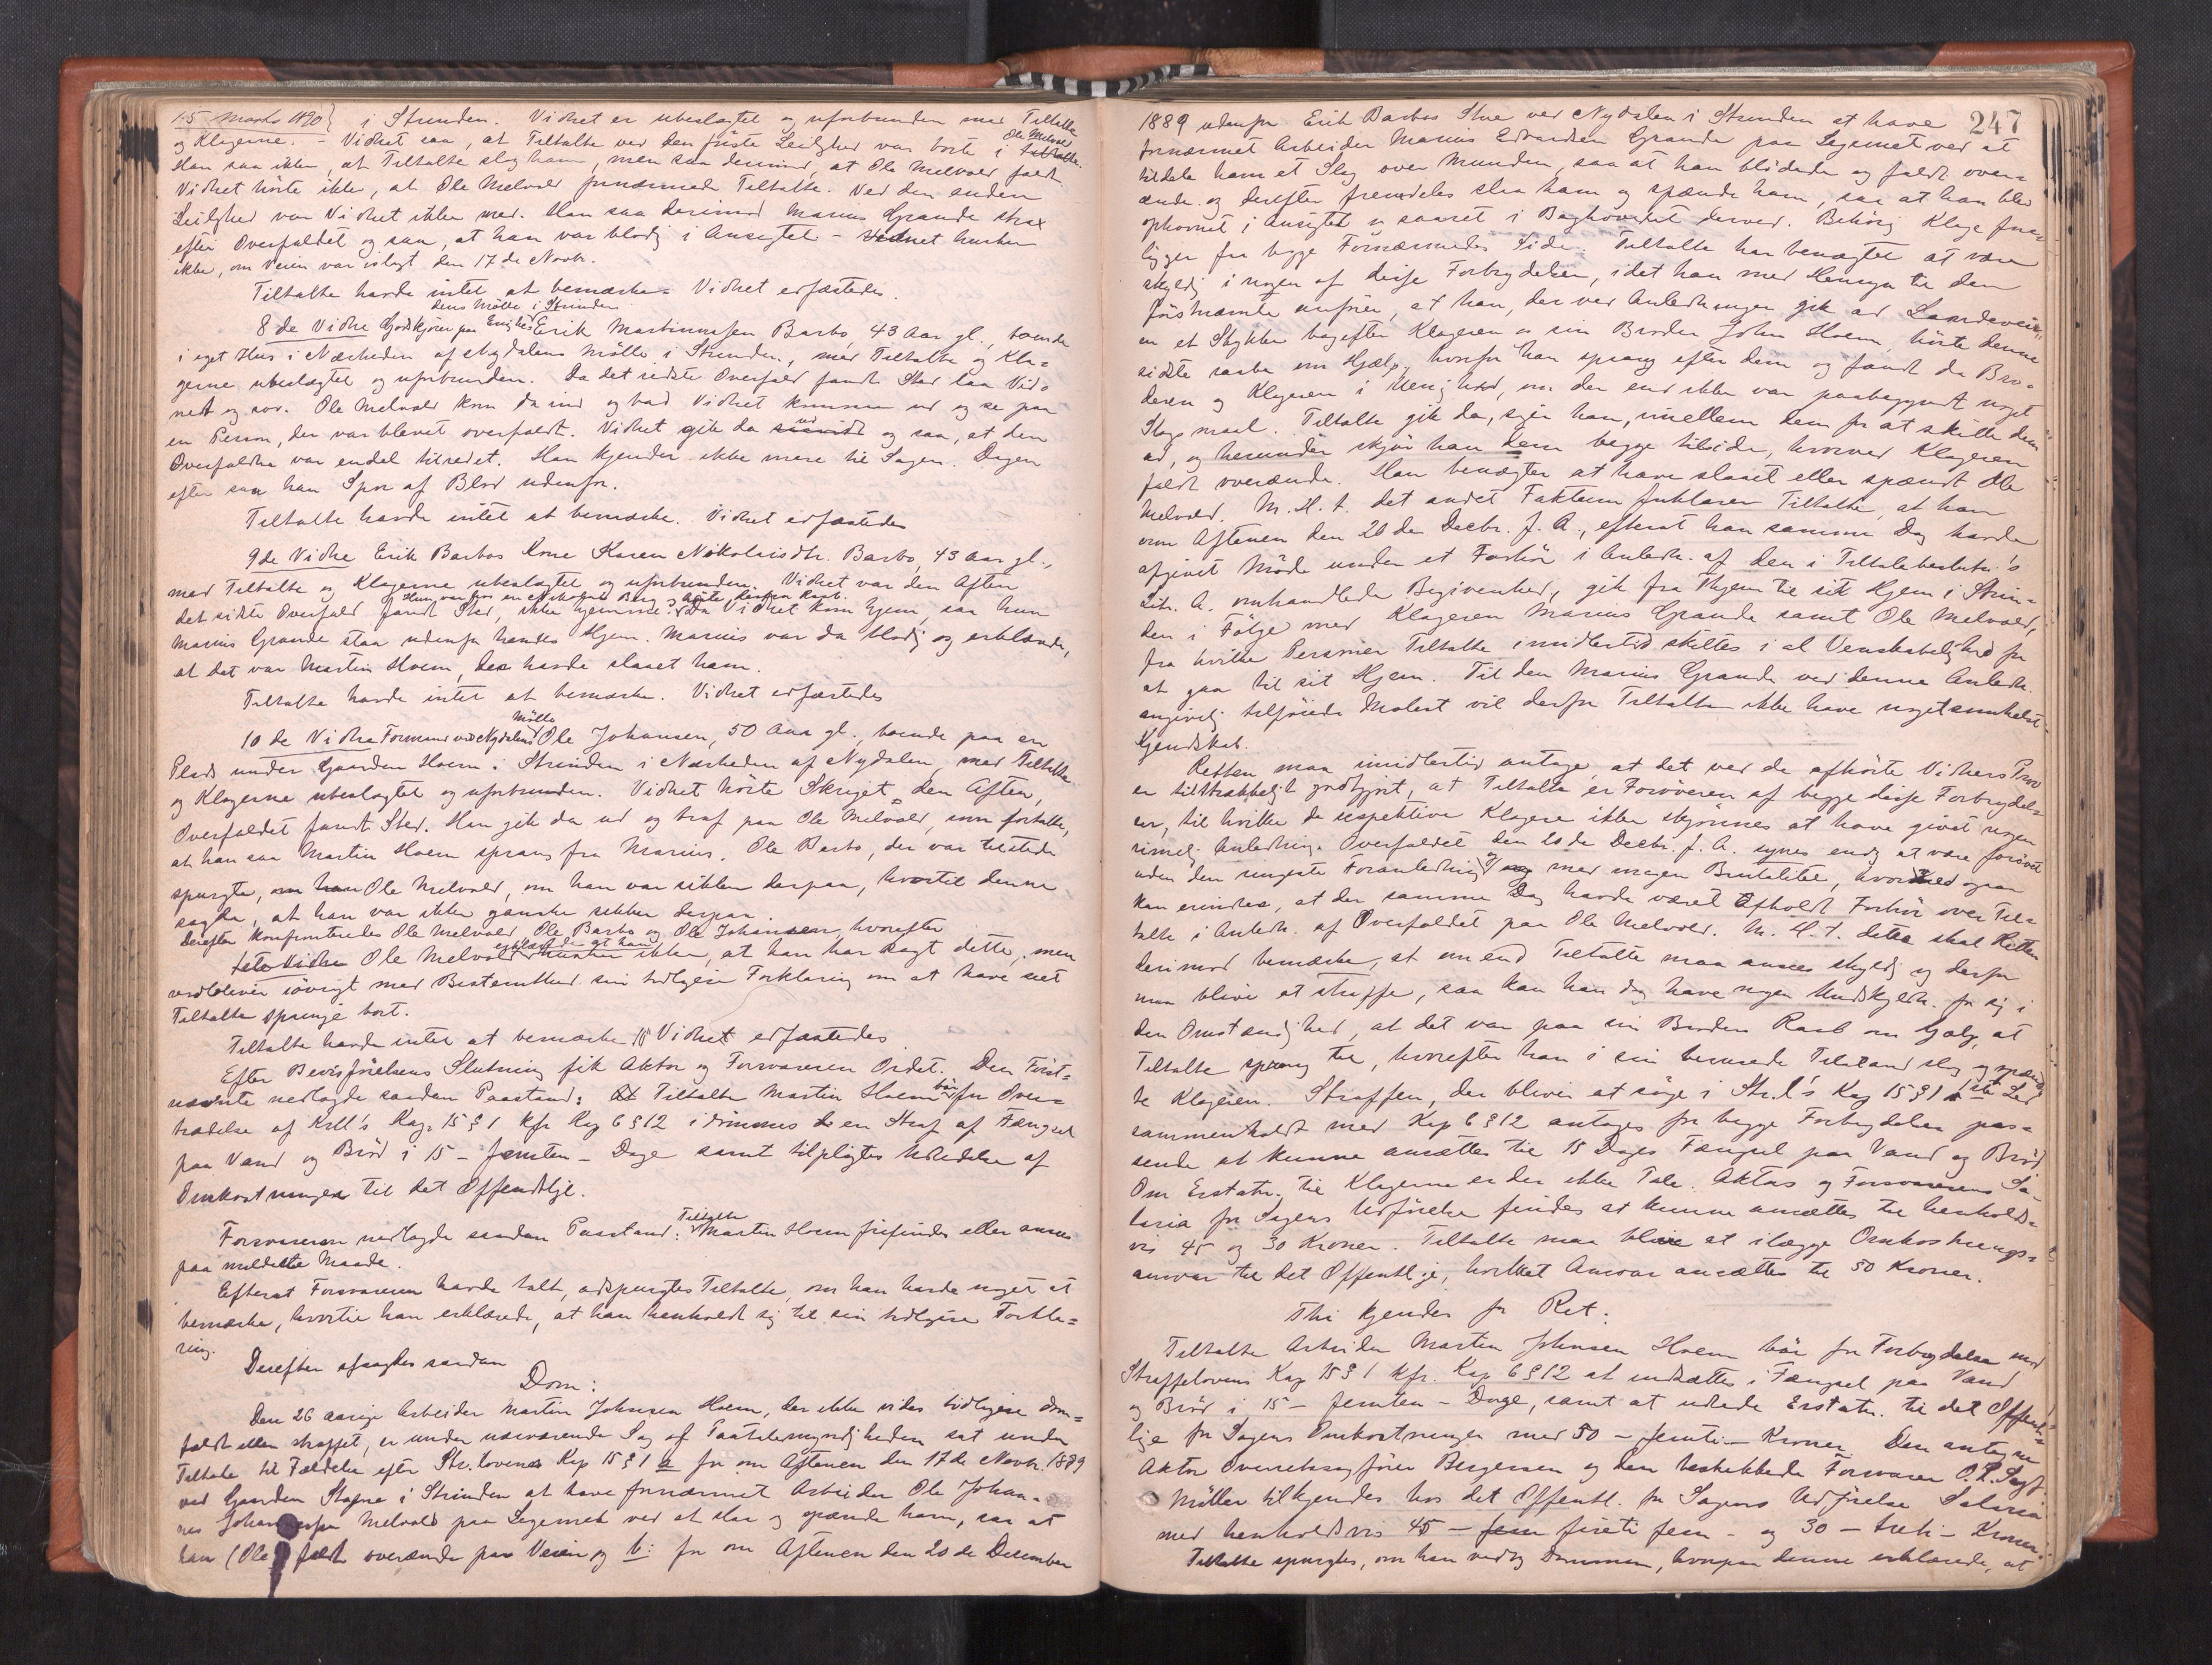 15 Marts 1890} i Strinden. Vidnet er ubeslægtet og uforbunden med Tiltalte
og Klagerne. – Vidnet saa, at Tiltalte ved den første Leilighed var borte i Ole Melvold tiltalte.
Han saa ikke, at Tiltalte slog ham, men saa derimod, at Ole Melvold faldt.
Vidnet hörte ikke, at Ole Melvold fornærmede Tiltalte. Ved den anden
Leilighed var Vidnet ikke med. Han saa derimod Marius Grande strax
efter Overfaldet og saa, at han var blodig i Ansigtet – Vidnet husker
ikke, om Veien var islagt den 17de Novbr.
Tiltalte havde intet at bemærke – Vidnet edfæstedes.
8de Vidne Godskjører paa Eng hos dens Mölle i Strinden Erik Martinussen Barbo, 43 Aar gl., boende
i eget Hus i Nærheden af Nydalens Mölle i Strinden, med Tiltalte og Kla=
gerne ubeslægtet og uforbunden. Da det sidste Overfald fandt Sted laa Vid=
net og sov. Ole Melvold kom da ind og bad Vidnet komme ud og se paa
en Person, der var blevet overfaldt. Vidnet gik da ud og saa, at den
Overfaldne var endel tilredet. Han kjender ikke mere til Sagen. Dagen
efter saa han Spor af Blod udenfor.
Tiltalte havde intet at bemærke. Vidnet edfæstedes
9de Vidne Erik Barbos Kone Karen Nikolaisdtr. Barbo, 43 Aar gl.,
med Tiltalte og Klagerne ubeslægtet og uforbunden. Vidnet var den Aften
det sidste Overfald fandt Sted, ikke hjemme. Hun var hos en Nabo Berg og hörte derfra Raab. Da Vidnet kom hjem, saa hun
Marius Grande staa udenfor hendes Hjem. Marius var da blodig og erklærede,
at det var Martin Hoem, der havde slaaet ham.
Tiltalte havde intet at bemærke. Vidnet edfæstedes
10de Vidne Formand ved Nydalens Mölle Ole Johansen, 50 Aar gl., boende paa en
Plads under Gaarden Hoem i Strinden i Nærheden af Nydalen, med Tiltalte
og Klagerne ubeslægtet og uforbunden. Vidnet hörte Skriget den Aften,
Overfaldet fandt Sted. Han gik da ud og traf paa Ole Melvold, som fortalte,
at han saa Martin Hoem sprang fra Marius. Ole Barbo, der var tilstede
spurgte, om han Ole Melvold, om han var sikker derpaa, hvortil denne
sagde, at han var ikke ganske sikker derpaa.
Derefter konfronteredes Ole Melvold, Ole Barbo og Ole Johansen, hvorefter
1ste Vidne Ole Melvold erklærede at han husker ikke, at han har sagt dette, men
vedbliver iøvrigt med Bestemthed sin tidligere Forklaring om at have seet
Tiltalte springe bort.
Tiltalte havde intet at bemærke. Vidnet edfæstedes
Efter Bevisførelsens Slutning fik Aktor og Forsvareren Ordet. Den Först=
nævnte nedlagde saadan Paastand: At Tiltalte Martin Hoem bör for Over=
trædelse af Krll's Kap. 15 § 1 kfr Kap 6 § 12 idømmes en Straf af Fængsel
paa Vand og Brød i 15 – femten – Dage samt tilpligtes Udredelse af
Omkostninger til det Offentlige.
Forsvareren nedlagde saadan Paastand: Tiltalte Martin Hoem frifindes eller ansees
paa mildeste Maade.
Efterat Forsvareren havde talt, adspurgtes Tiltalte, om han havde noget at
bemærke, hvortil han erklærede, at han henholdt sig til sin tidligere Forkla=
ring.
Derefter afsagdes saadan
Dom:
Den 26 aarige Arbeider Martin Johnsen Hoem, der ikke vides tidligere dom=
fældt eller straffet, er under nærværende Sag af Paatalemyndigheden sat under
Tiltale til Fældelse efter Str. lovens Kap 15 § 1 a for om Aftenen den 17de Novbr. 1889
ved Gaarden Stafne i Strinden at have fornærmet Arbeider Ole Johan=
nes Johannessen Melvold paa Legemet ved at slaa og spænde ham, saa at
han (Ole) faldt overænde paa Veien og b: for om Aftenen den 20de December
247
1889 udenfor Erik Barbos Stue ved Nydalen i Strinden at have
fornærmet Arbeider Marius Edvardsen Grande paa Legemet ved at
tildele ham et Slag over Munden, saa at han blödede og faldt over=
ænde og derefter fremdeles slaa ham og spænde ham, saa at han blev
ophovnet i Ansigtet og saaret i Baghovedet derved. Behörig Klage fore=
ligger fra begge Fornærmedes Side. Tiltalte har benægtet at være
skyldig i nogen af disse Forbrydelser, idet han med Hensyn til den
förstnævnte anfører, at han, der ved Anledningen gik ad Landeveien
en et Stykke bagefter Klageren og sin Broder John Hoem, hörte denne
sidste raabe om Hjælp, hvorfor han sprang efter dem og fandt da Bro=
deren og Klageren i Uenighed, om der end ikke var paabegyndt noget
Slagsmaal. Tiltalte gik da, siger han, imellem dem for at skille dem
ad, og herunder skjöv han dem begge tilside, hvorved Klageren
faldt overænde. Han benægter at have slaaet eller spændt Ole
Melvold. M. H. t. det andet Faktum forklarer Tiltalte, at han
om Aftenen den 20de Decbr. f. A., efterat han samme Dag havde
afgivet Möde under et Forhör i Anledn. af den i Tiltalebeslutn.'s
Litr. A. omhandlede Begivenhed, gik fra Thjem til sit Hjem i Strin=
den i Fölge med Klageren Marius Grande samt Ole Melvold,
fra hvilke Personer Tiltalte imidlertid skiltes i al Venskabelighed for
at gaa til sit Hjem. Til den Marius Grande ved denne Anledn.
angivelig tilföiede Molest vil derfor Tiltalte ikke have nogetsomhelst
Kjendskab.
Retten maa imidlertid antage, at det ved de afhörte Vidners Prov
er tilstrækkeligt godtgjort, at Tiltalte er Forøveren af begge disse Forbrydel=
ser, til hvilke de respektive Klagere ikke skjönnes at have givet nogen
rimelig Anledning. Overfaldet den 20de Decbr. f. A. synes endog at være forøvet
uden den ringeste Foranledning og med megen Brutalitet, hvorhos ogsaa
kan erindres, at der samme Dag havde været afholdt Forhör over Til=
talte i Anledn. af Overfaldet paa Ole Melvold. M. H. t. dette skal Retten
derimod bemærke, at om end Tiltalte maa ansees skyldig og derfor
maa blive at straffe, saa kan han dog have nogen Undskyldn. for sig i
den Omstændighed, at det var paa sin Broders Raab om Hjælp, at
Tiltalte sprang til, hvorefter han i sin berusede Tilstand slog og spænd=
te Klageren. Straffen, der bliver at söge i Str.l's Kap 15 § 1 1ste Led
sammenholdt med Kap 6 § 12 antages for begge Forbrydelser pas=
sende at kunne ansættes til 15 Dages Fængsel paa Vand og Bröd.
Om Erstatn. til Klagerne er der ikke Tale. Aktors og Forsvarerens Sa=
laria for Sagens Udførelse findes at kunne ansættes til henholds=
vis 45 og 30 Kroner. Tiltalte maa blive at ilægge Omkostnings=
ansvar til det Offentlige, hvilket Ansvar ansættes til 50 Kroner.
Thi kjendes for Ret:
Tiltalte Arbeider Martin Johnsen Hoem bör for Forbrydelse mod
Straffelovens Kap 15 § 1 kfr. Kap. 6 § 12 at indsættes i Fængsel paa Vand
og Bröd i 15 – femten – Dage, samt at udrede Erstatn. til det Offent=
lige for Sagens Omkostninger med 50 – femti – Kroner. Den antagne
Aktor Overretssagfører Bergersen og den beskikkede Forsvarer O.R.Sagf.
Möller tilkjendes hos det Offentl. for Sagens Udførelse Salaria
med henholdsvis 45 – fem fireti fem – og 30 – treti – Kroner.
Tiltalte spurgtes, om han vedtog Dommen, hvorpaa denne erklærede, at